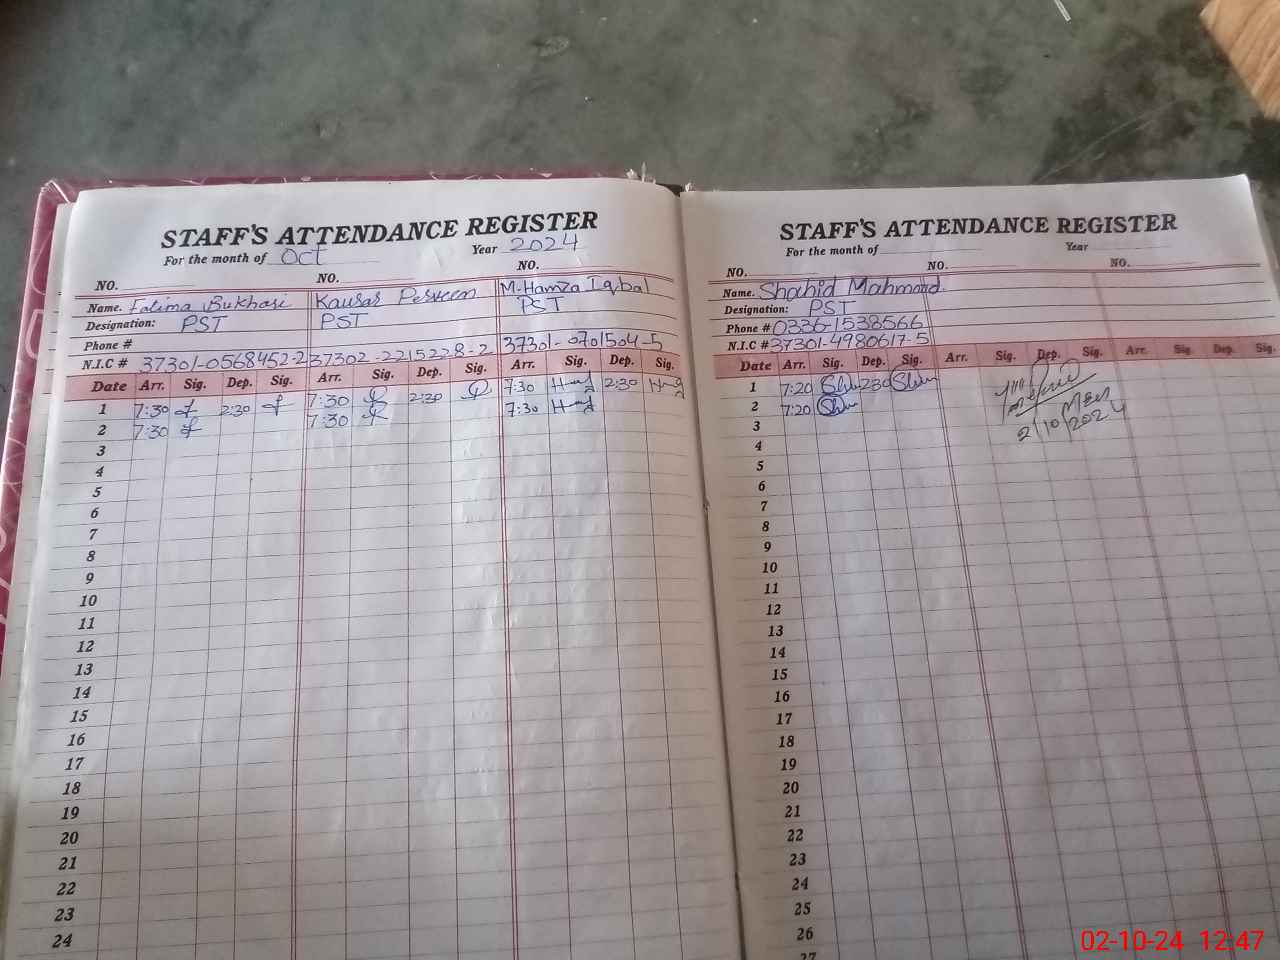 STAFF'S ATTENDANCE REGISTER
For the month of Oct Year 2024
NO. NO. NO.
Name. Fatima Bukhari Kausar Perveen M. Hamza Iqbal
Designation: PST PST PST
Phone #
N.I.C # 37301-0568452-2 37302-2215228-2 37301-0701504-5
Date Arr. Sig. Dep. Sig. Arr. Sig. Dep. Sig. Arr. Sig. Dep. Sig.
1 7:30 2:30 7:30 2:30 7:30 2:30
2 7:30 7:30 7:30
3
4
5
6
7
8
9
10
11
12
13
14
15
16
17
18
19
20
21
22
23
24
STAFF'S ATTENDANCE REGISTER
For the month of Year
NO. NO. NO.
Name. Shahid Mahmood.
Designation: PST
Phone # 0336-1538566
N.I.C # 37301-4980617-5
Date Arr. Sig. Dep. Sig. Arr. Sig. Dep. Sig. Arr. Sig. Dep. Sig.
1 7:20 2:30
2 7:20
3
4
5
6
7
8
9
10
11
12
13
14
15
16
17
18
19
20
21
22
23
24
25
26
27
MEA
2/10/2024
02-10-24 12:47